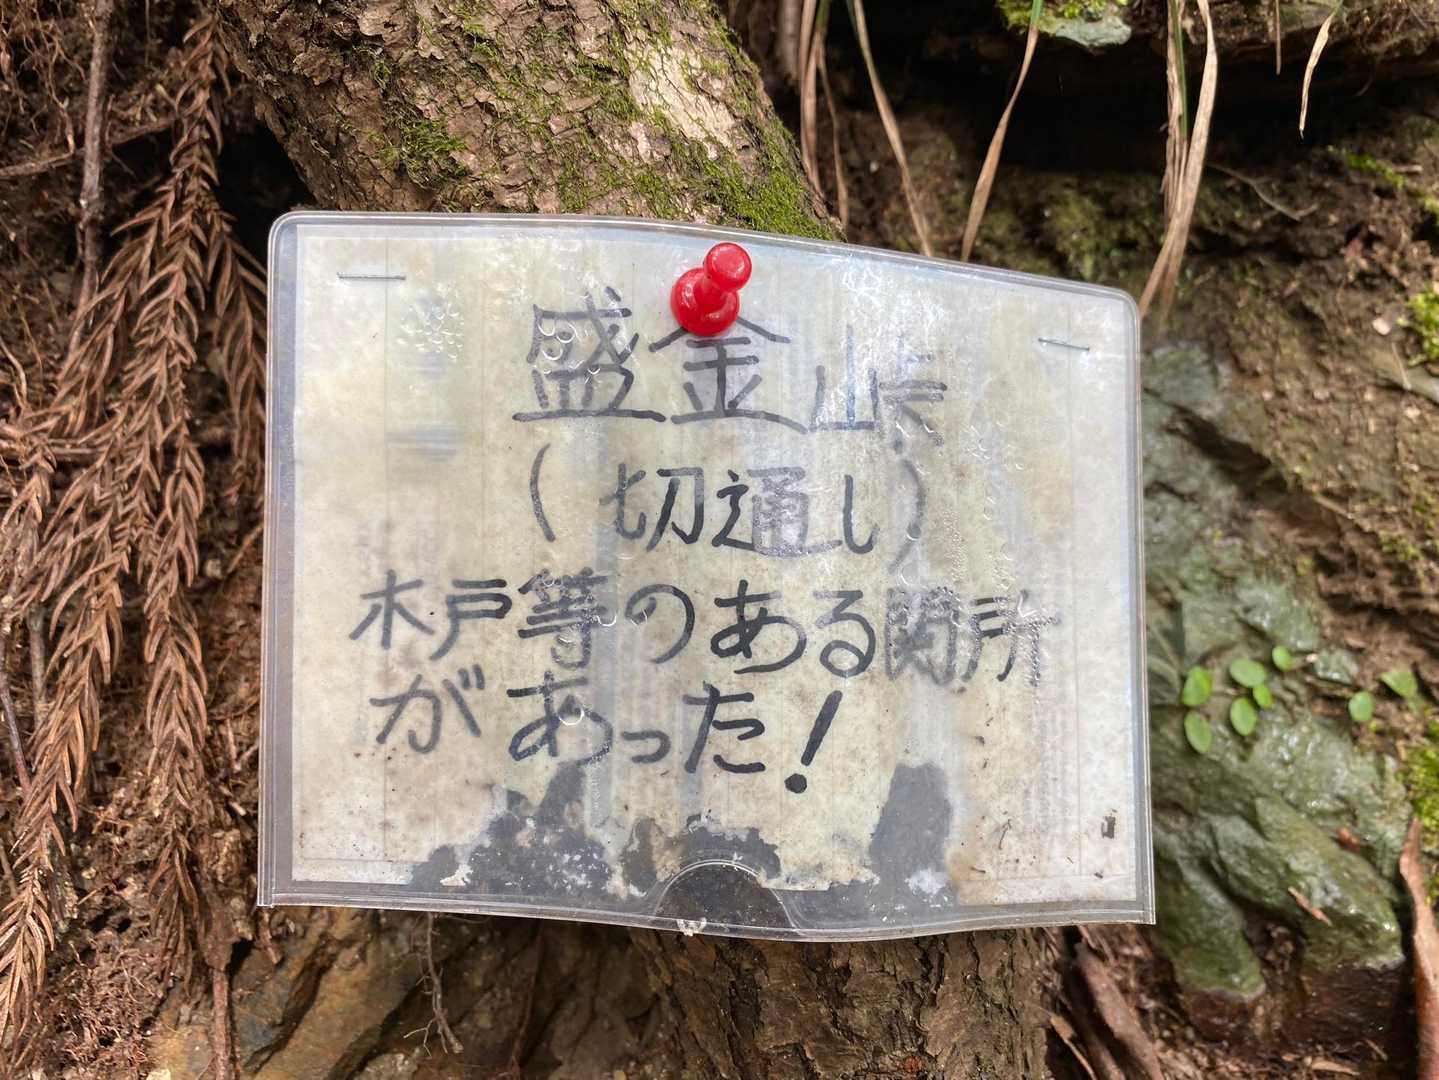 盛金峠
(切通し)
木戸等のある関所
があった!